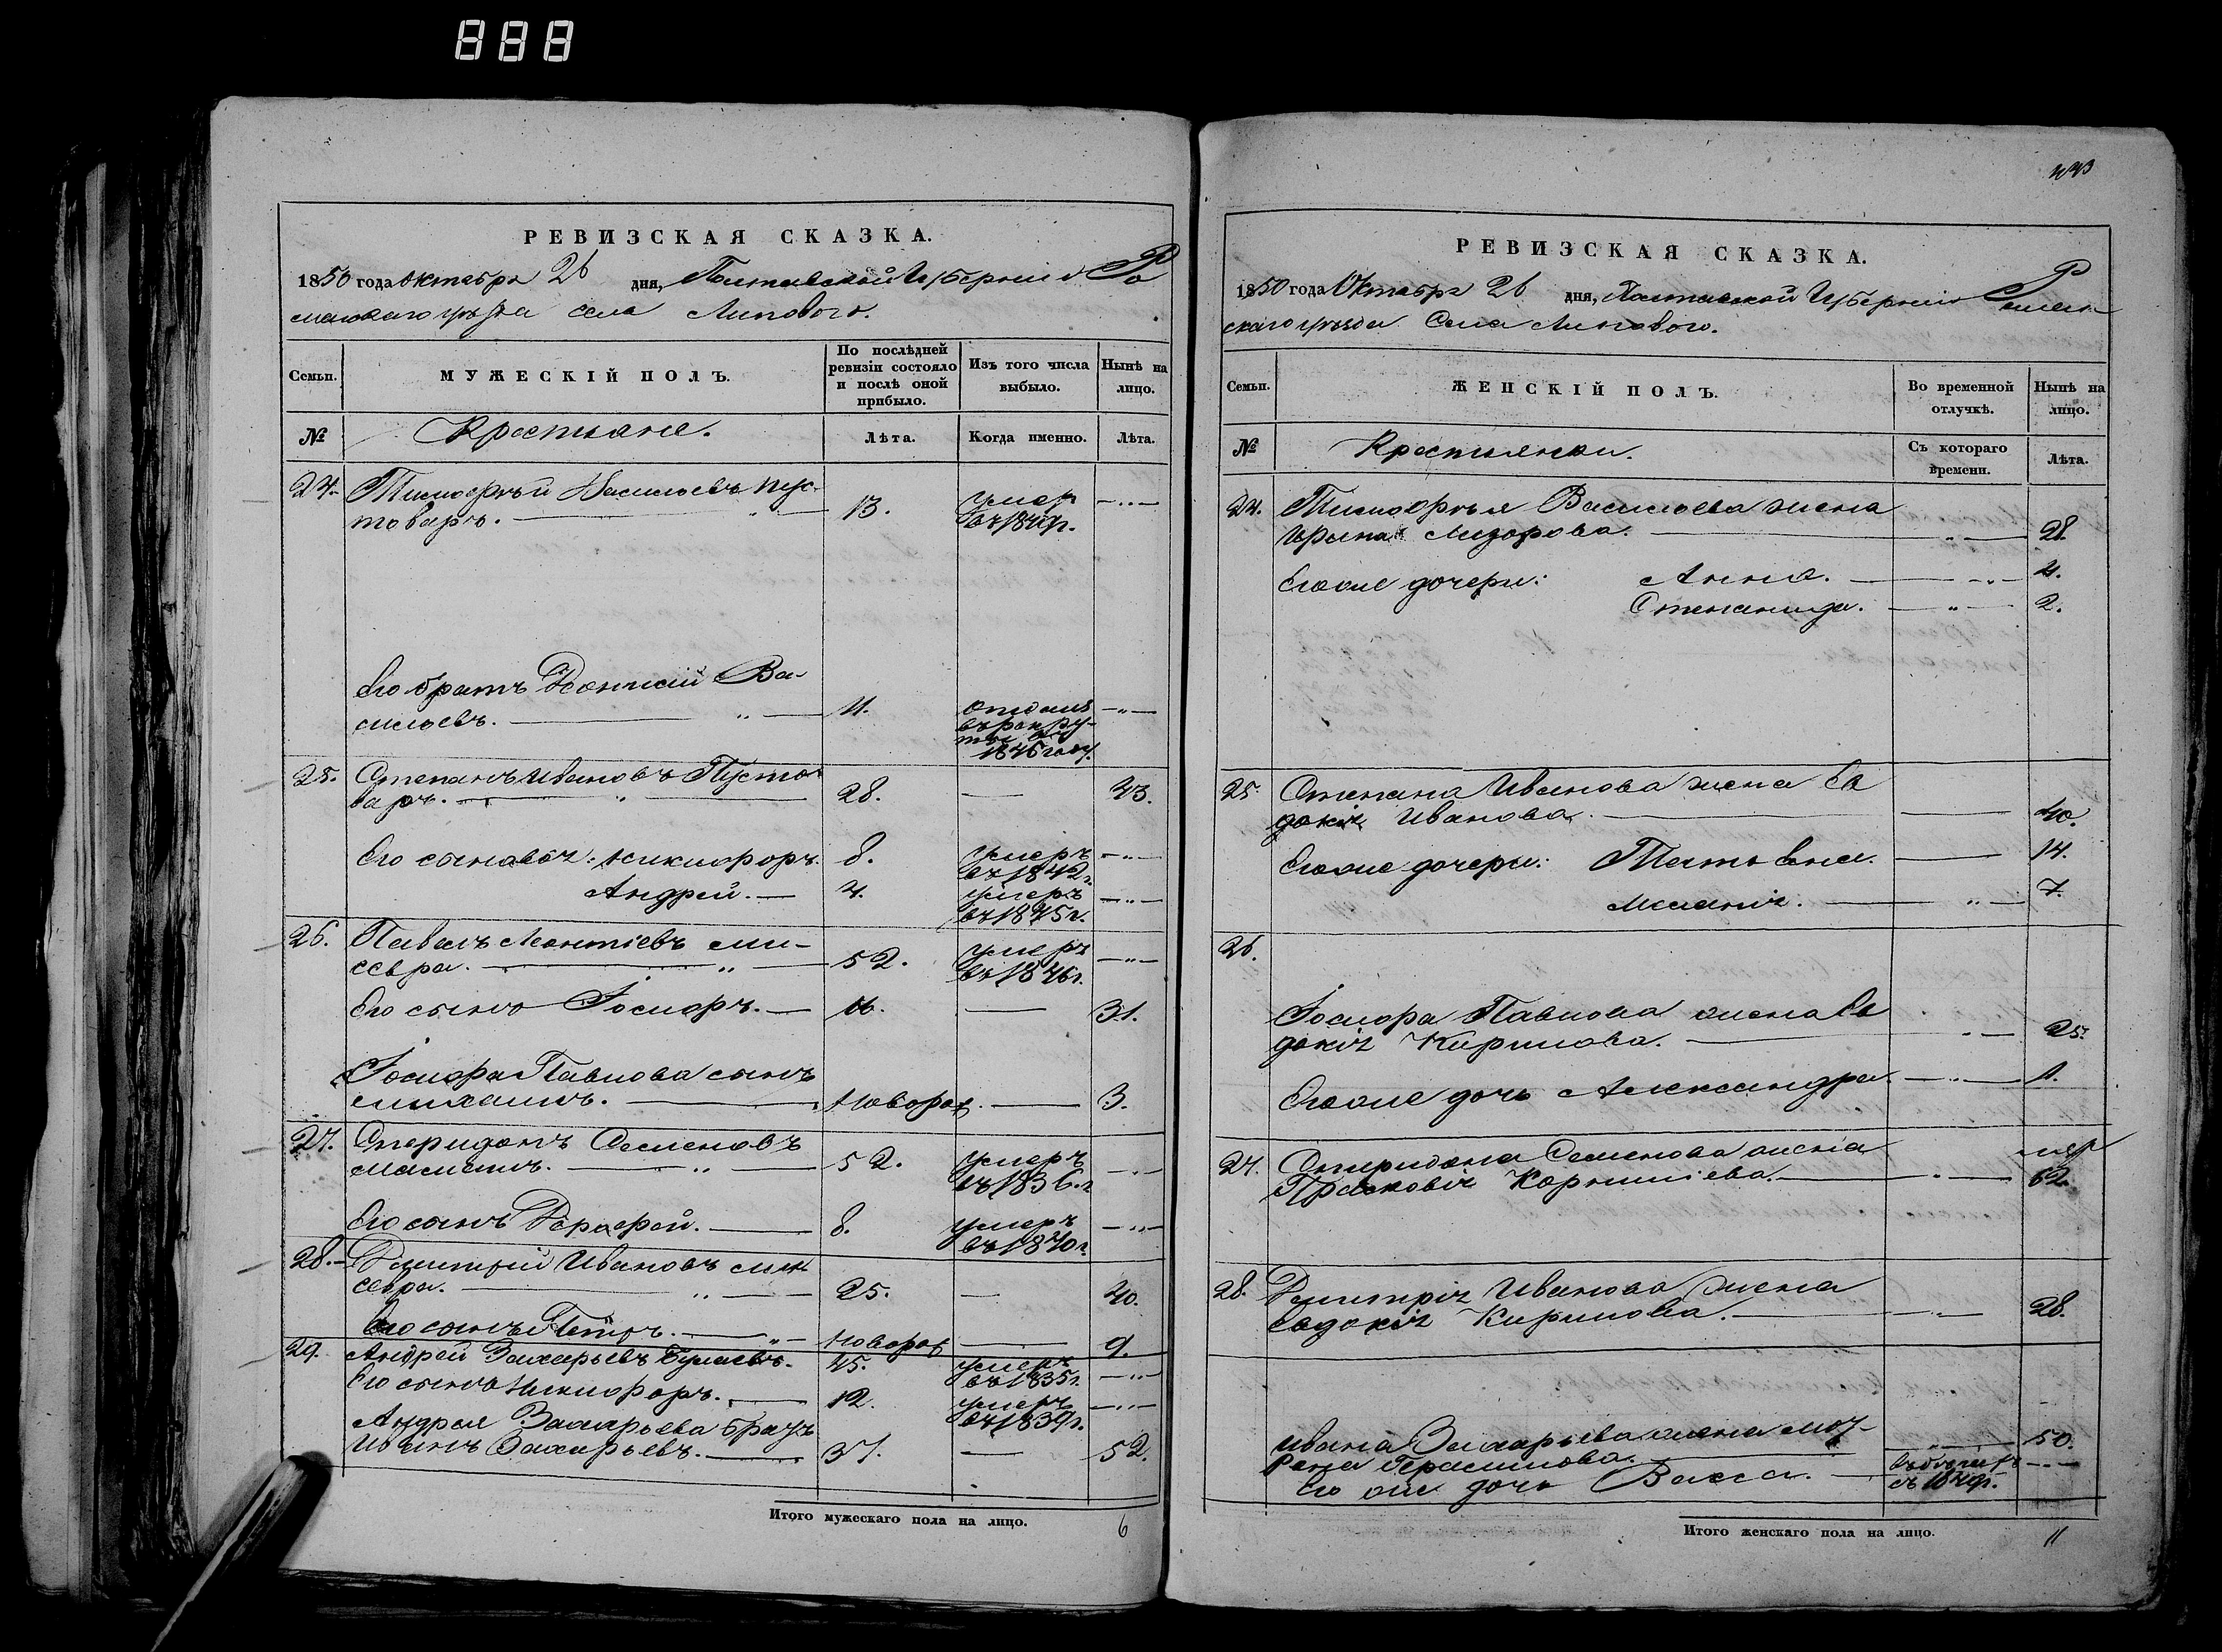 888
РЕВИЗСКАЯ СКАЗКА.
1850 года Октября 26 дня, Полтавской Губерніи Ро
менскаго уѣзда села Липового.
Семьи.
МУЖЕСКІЙ ПОЛЪ.
По послѣдней ревизіи состояло и послѣ оной прибыло.
Изъ того числа выбыло.
Нынѣ на лицо.
№
Крестьяне.
Лѣта.
Когда именно.
Лѣта.
24. Тимофѣй Васильевъ Пус-
товаръ. 13. умер
Его братъ Деонисій Ва-
сильевъ. 11. отданъ
въ рекру-
ты въ
1846 году.
25. Степанъ Ивановъ Пусто
варъ. 28. — 43.
Его сыновья: Никифоръ. 8. умеръ
въ 1842 г.
Андрей. — 4. умеръ
въ 1845 г.
26. Павелъ Леонтіевъ
52. умеръ
въ 1846 г.
Его сынъ Іосифъ. — 16. — 31.
Іосифа Павлова сынъ
Михаилъ. новорож. — 3.
27. Спиридонъ Семеновъ
52. умеръ
въ 1836 г.
Его сынъ Дорофей. — 8. умеръ
въ 1840 г.
28. Димитрій Ивановъ
25. — 40.
Его сынъ Петръ. — новорож — 9.
29. Андрей Захарьевъ 45. умеръ
въ 1835 г.
Его сынъ Никифоръ. — 12. умеръ
въ 1839 г.
Андрея Захарьева братъ
Иванъ Захарьевъ. — 37. — 52.
Итого мужескаго пола на лицо. 6
РЕВИЗСКАЯ СКАЗКА.
1850 года Октября 26 дня, Полтавской Губерніи Ромен
скаго уѣзда Села Липового.
Семьи.
ЖЕНСКІЙ ПОЛЪ.
Во временной отлучкѣ.
Нынѣ на лицо.
№
Крестьянки.
Съ котораго времени.
Лѣта.
24. Тимофѣя Васильева жена
Ирина 28.
Его же дочери: Анна. — 4.
Степанида. — 2.
25. Степана Иванова жена Ев
докія Иванова. — 40.
Его же дочери: Татьяна. — 14.
Меланія. — 7.
26.
Іосифа Павлова жена Ев
докія Кирилова. — 25.
Его же дочь Александра. — 1.
27. Спиридона Семенова жена
Прасковія Корниліева. — 62.
28. Димитрія Иванова жена
Евдокія Кирилова. — 28.
Ивана Захарьева жена Мот
рена Герасимова. — 50.
Его же дочь Васса. —
Итого женскаго пола на лицо. 11